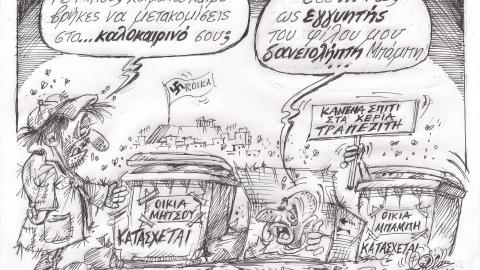 βρήκες να μετακομίσεις
στα...καλοκαιρινά σου;
ως εγγυητής
του φίλου μου
δανειολήπτη Μπάμπη...
ROIKA
ΚΑΝΕΝΑ ΣΠΙΤΙ
ΣΤΑ ΧΕΡΙΑ
ΤΡΑΠΕΖΙΤΗ
ΟΙΚΙΑ
ΜΗΤΣΟΥ
ΚΑΤΑΣΧΕΤΑΙ
ΟΙΚΙΑ
ΜΠΑΜΠΗ
ΚΑΤΑΣΧΕΤΑΙ